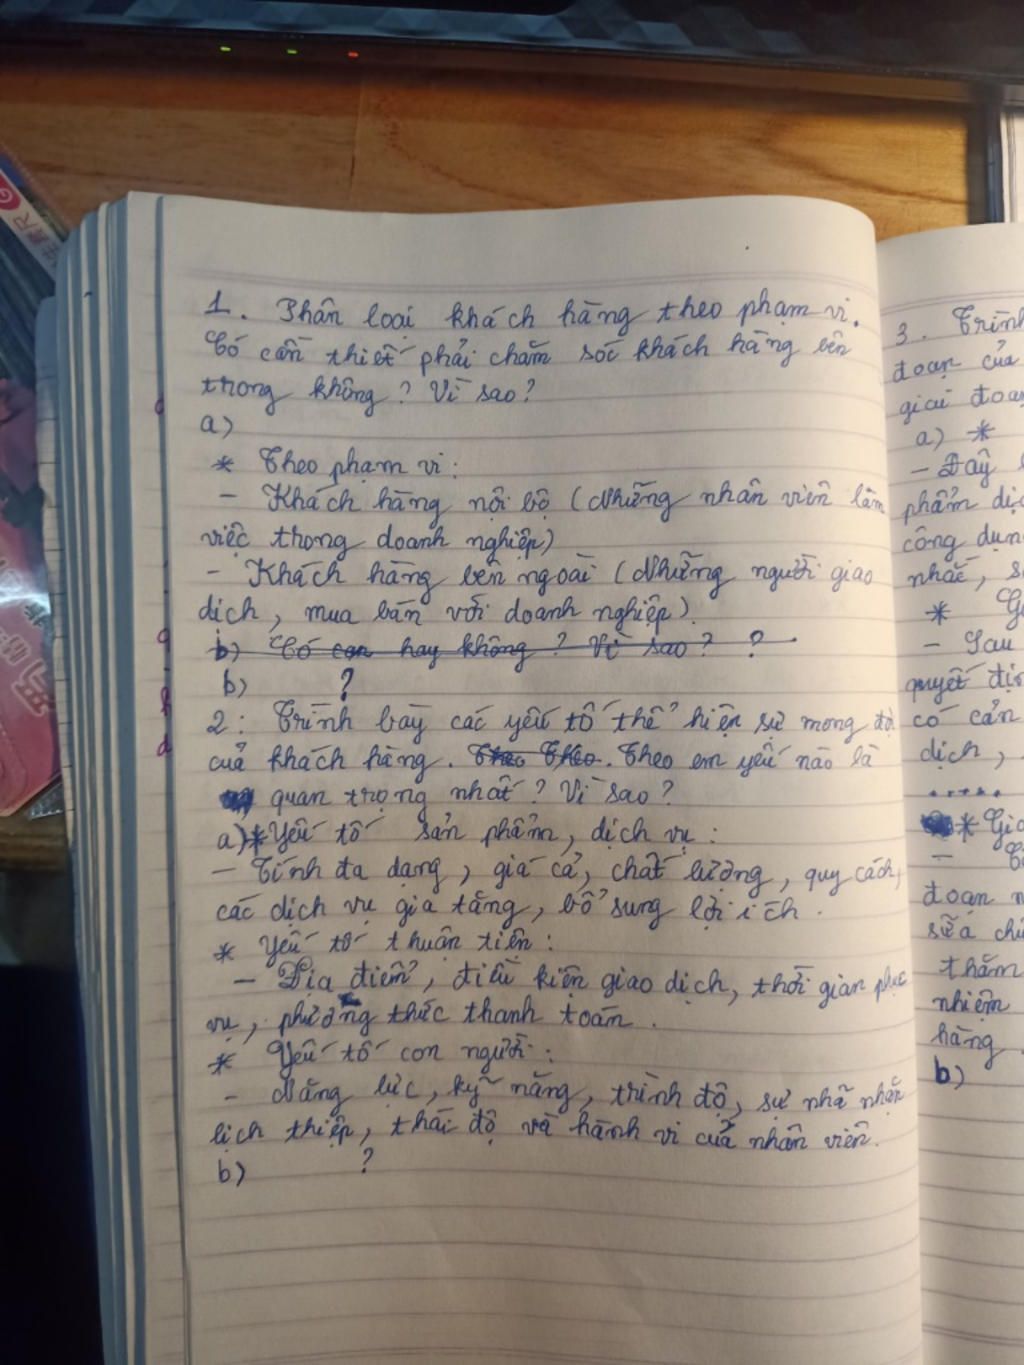 1. Phân loại khách hàng theo phạm vi.
Có cần thiết phải chăm sóc khách hàng bên
trong không? Vì sao?
a)
* Theo phạm vi:
- Khách hàng nội bộ (Những nhân viên làm
việc trong doanh nghiệp)
- Khách hàng bên ngoài (Những người giao
dịch, mua bán với doanh nghiệp).
b) Có con hay không? Vì sao? ?
b) ?
2: Trình bày các yếu tố thể hiện sự mong đợi
của khách hàng. Theo Theo. Theo em yếu nào là
quan trọng nhất? Vì sao?
a)* Yếu tố sản phẩm, dịch vụ:
- Tính đa dạng, giá cả, chất lượng, quy cách,
các dịch vụ gia tăng, bổ sung lợi ích.
* Yếu tố thuận tiện:
- Địa điểm, điều kiện giao dịch, thời gian phục
vụ, phương thức thanh toán.
* Yếu tố con người:
- Năng lực, kỹ năng, trình độ, sự nhã nhặn
lịch thiệp, thái độ và hành vi của nhân viên.
b) ?
3. Trình
đoạn của
giai đoạn
a) *
- Đây
phẩm dịc
công dụn
nhắc, s
*
- Sau
quyết địn
có cản
dịch,
.....
* Gia
-
đoạn n
sữa chữ
thăm
nhiệm
hàng
b)